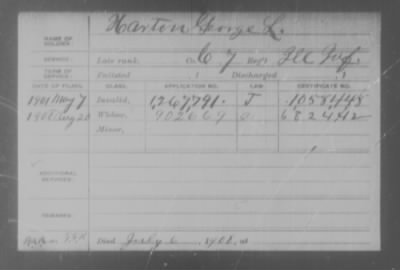 NAME OF SOLDIER: Harton George L.
SERVICE: Late rank, Co. C 7 Reg't Ill Inf.
TERM OF SERVICE: Enlisted , 1 Discharged , 1
DATE OF FILING. CLASS. APPLICATION NO. LAW. CERTIFICATE NO.
1901 May 7 Invalid, 1,267,791. J 1058448
1908 Aug 20 Widow, 902669 a 682442
Minor,
ADDITIONAL SERVICES:
REMARKS:
Died July 6, 1908, at